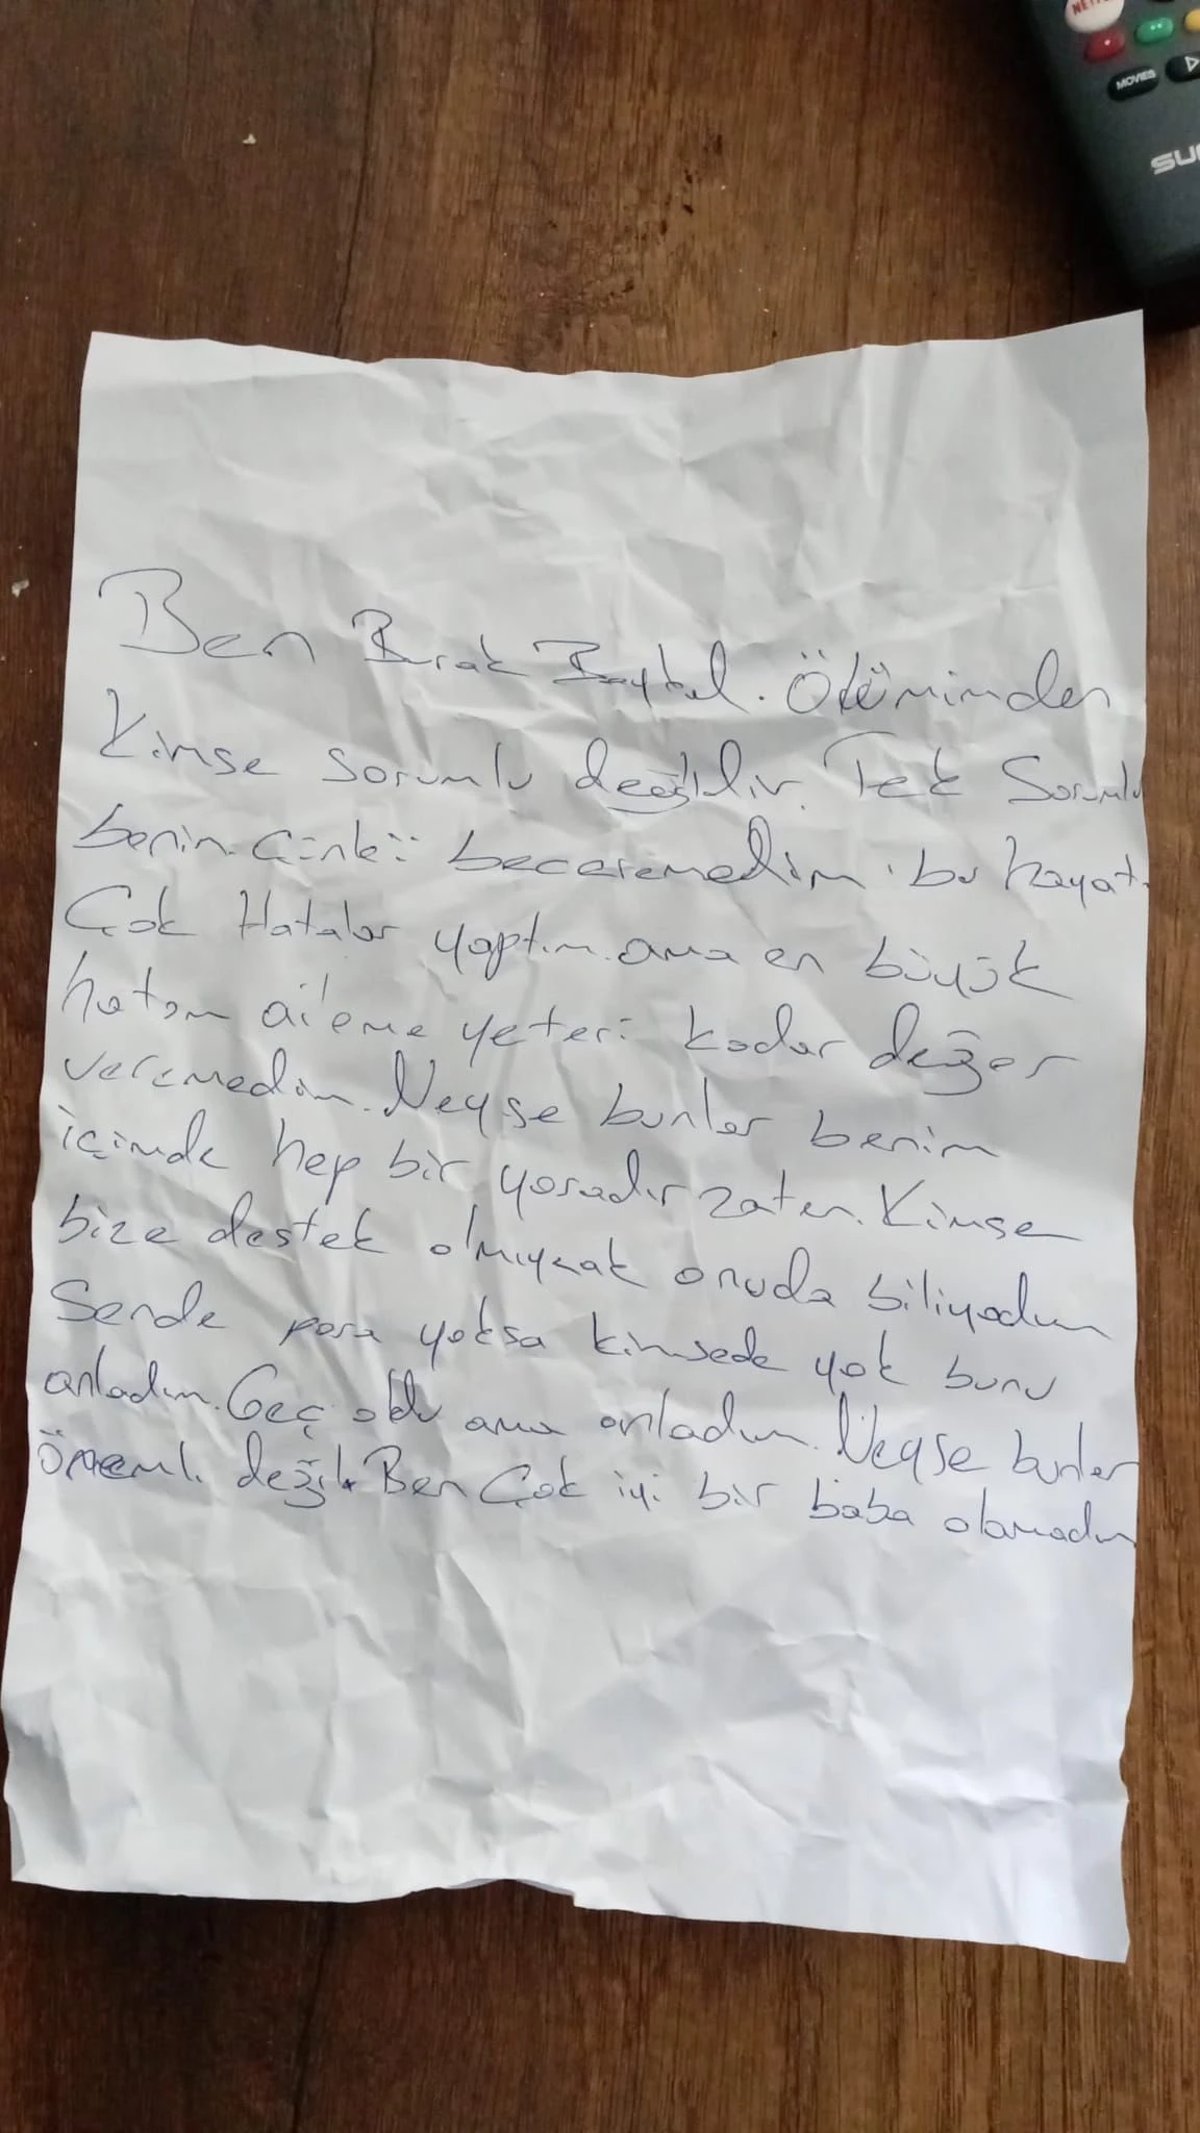 NETFLIX
MOVIES
SU
Ben Burak Baykal. Ölümümden
Kimse sorumlu değildir. Tek Sorumlu
benim. Çünkü beceremedim bu hayatı
Çok Hatalar yaptım. ama en büyük
hatam aileme yeteri kadar değer
veremedim. Neyse bunlar benim
içimde hep bir yaradır zaten. Kimse
bize destek olmıycak onuda biliyodum
Sende para yoksa kimsede yok bunu
anladım. Geç oldu ama anladım. Neyse bunlar
önemli değil. Ben Çok iyi bir baba olamadım